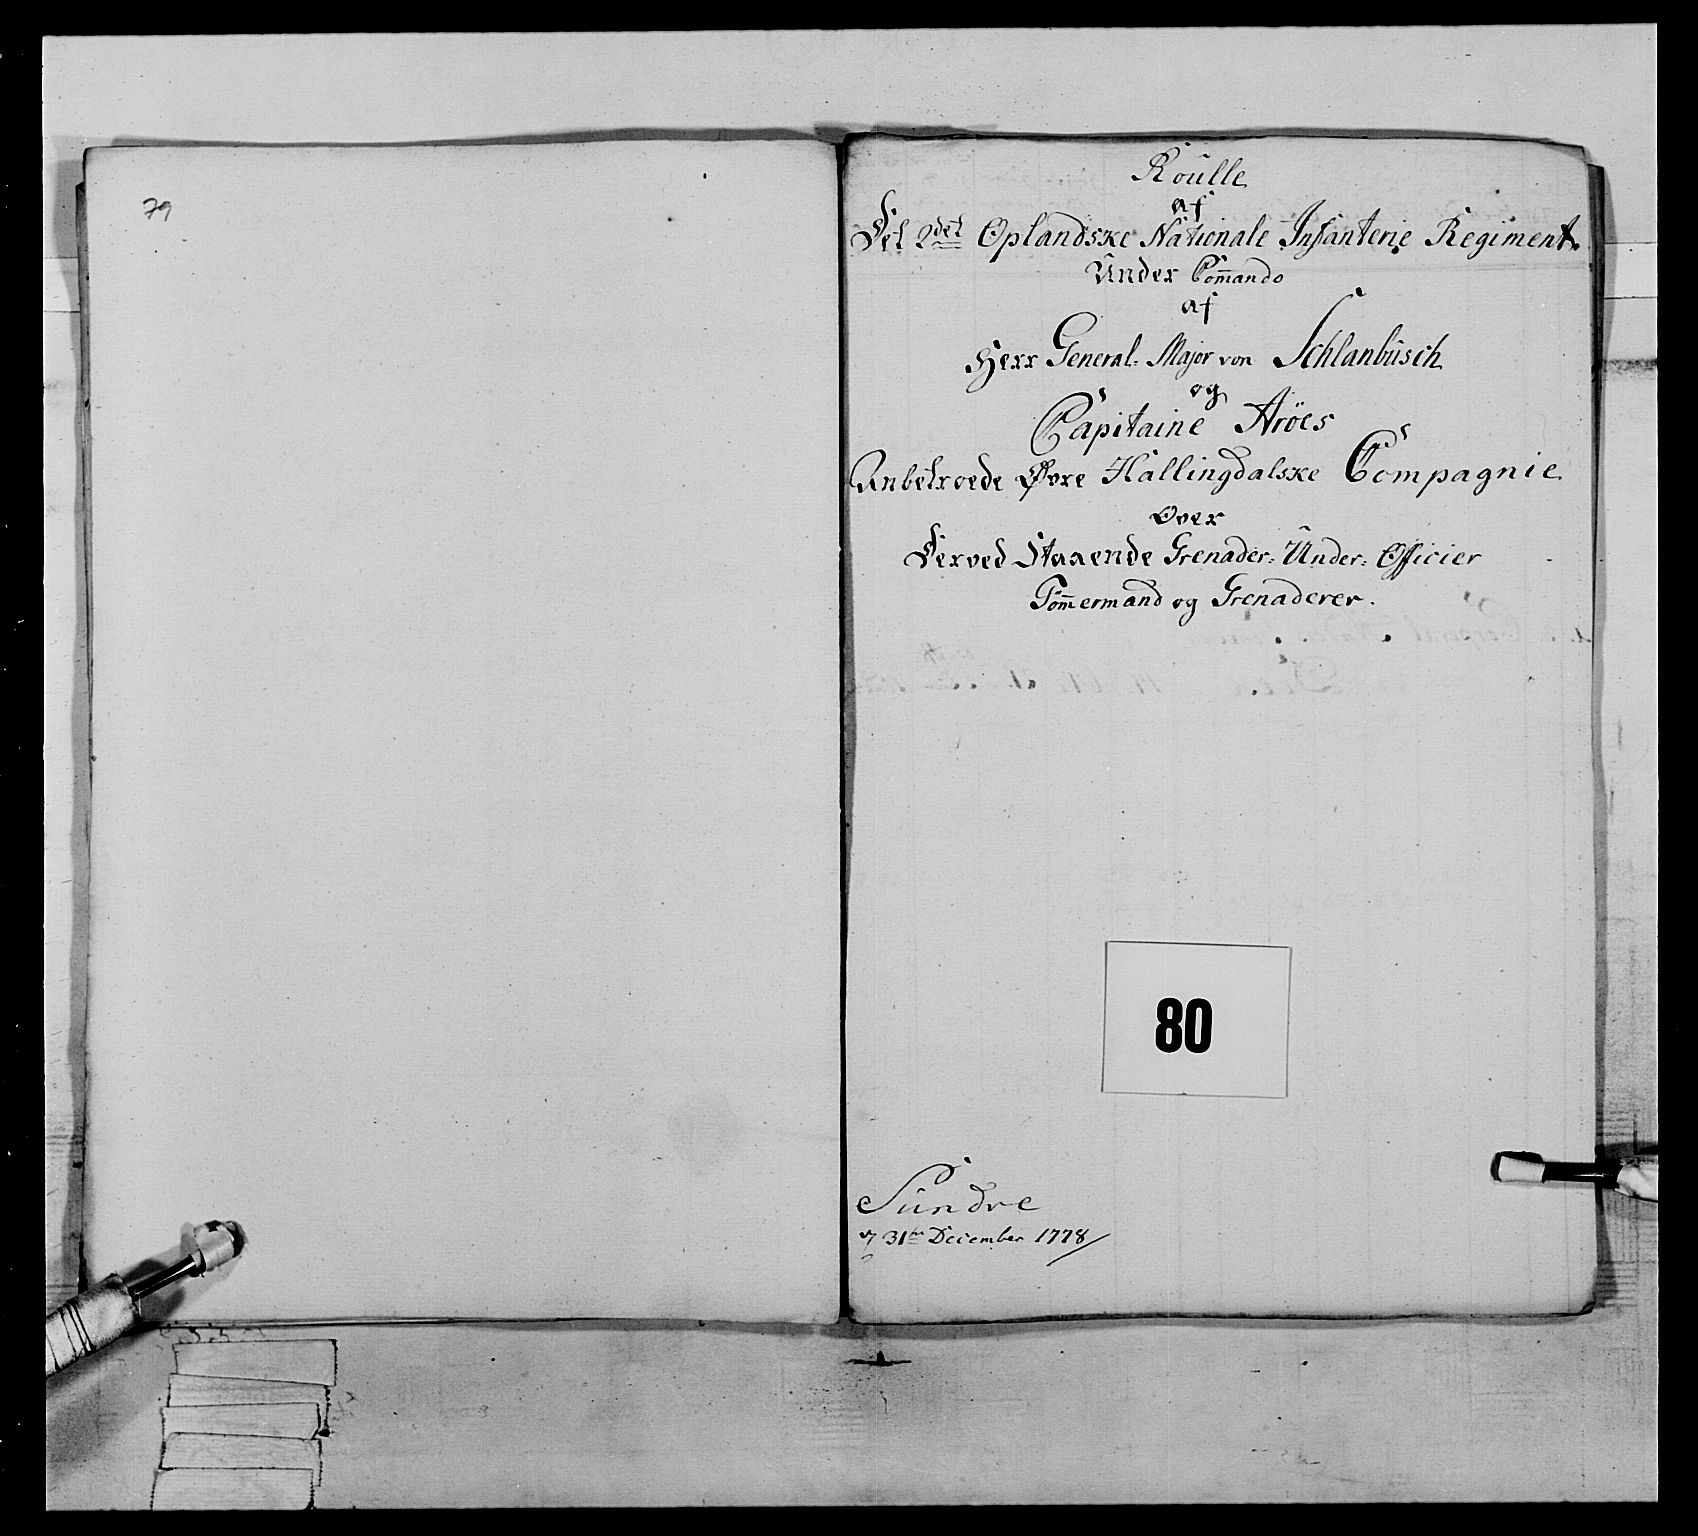 79
Roulle
af
Det 2det Oplandske Nationale Infanterie Regiment
Under Com̄ando
af
Herr General-Major von Schlanbusch
og
Capitaine Aröes
Anbetroede Øvre Hallingdalske Compagnie
Over
Derved Staaende Grenader-Under-Officier
Tøm̄ermand og Grenaderer.
80
Sundre
31te December 1778